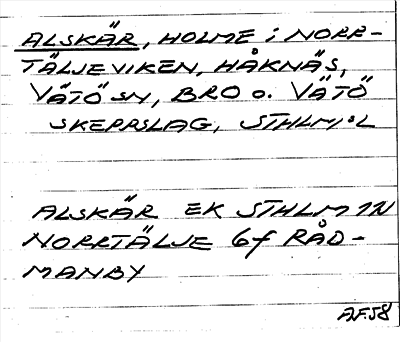 ALSKÄR, HOLME i NORR-
TÄLJEVIKEN, HÅKNÄS,
VÄTÖ SN, BRO o. VÄTÖ
SKEPPSLAG, STHLMS L
ALSKÄR EK STHLM 1N
NORRTÄLJE 6f RÅD-
MANBY
AF.58